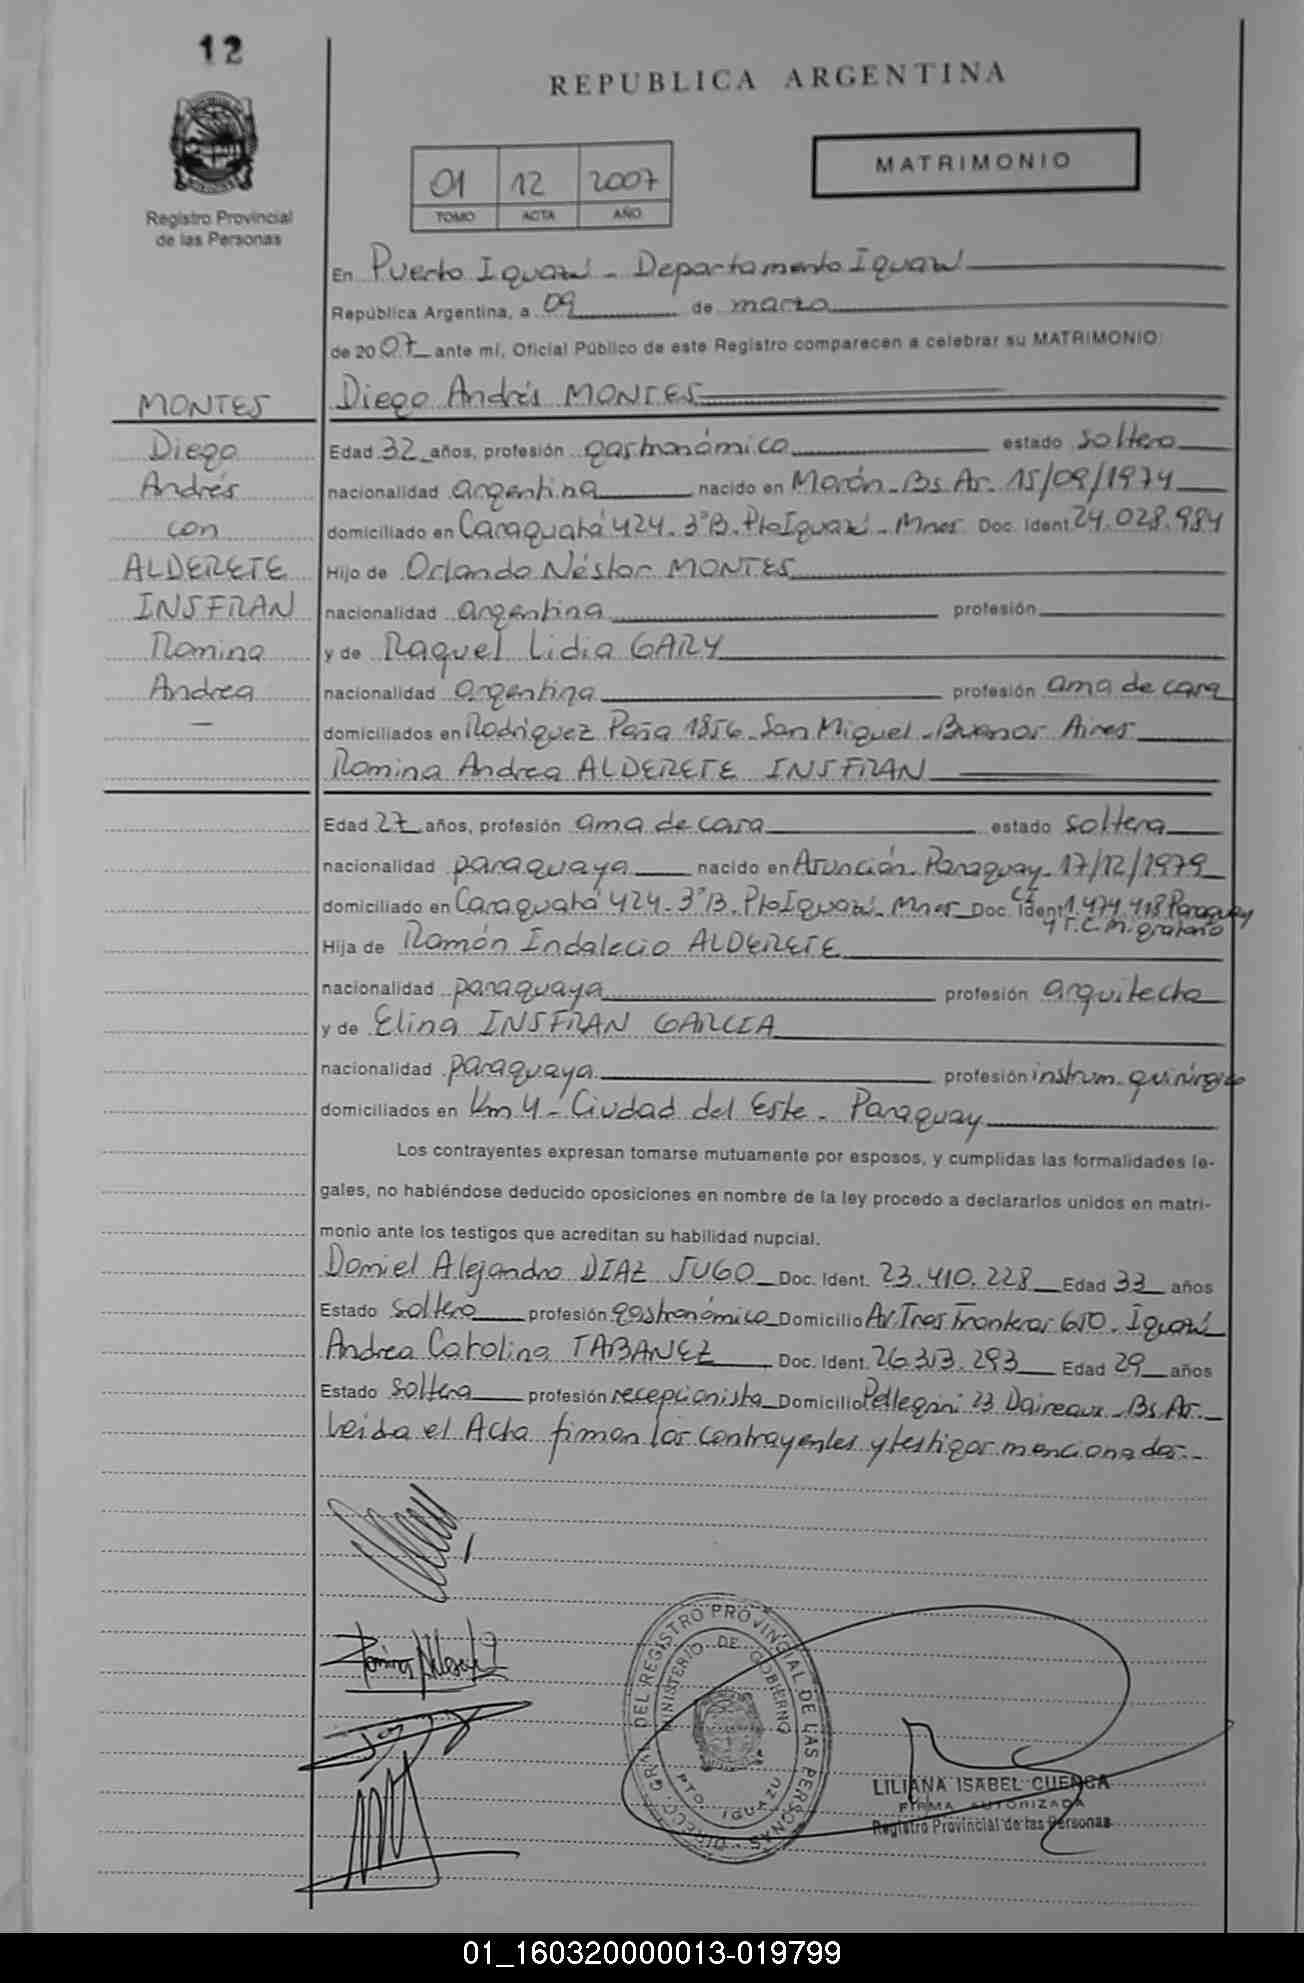 12
REPUBLICA ARGENTINA
MATRIMONIO
01 12 2007
TOMO ACTA AÑO
Registro Provincial
de las Personas
En Puerto Iguazú - Departamento Iguazú
República Argentina, a 09 de marzo
de 2007 ante mí, Oficial Público de este Registro comparecen a celebrar su MATRIMONIO:
MONTES
Diego
Andrés
con
ALDERETE
INSFRAN
Romina
Andrea
Diego Andrés MONTES
Edad 32 años, profesión gastronómico estado soltero
nacionalidad argentina nacido en Morón - Bs. As. 15/09/1974
domiciliado en Caraguatá 424 - 3º B - Pto Iguazú - Mnes Doc. Ident. 24.028.984
Hijo de Orlando Néstor MONTES
nacionalidad argentina profesión
y de Raquel Lidia GARY
nacionalidad argentina profesión ama de casa
domiciliados en Rodríguez Peña 1856 - San Miguel - Buenos Aires
Romina Andrea ALDERETE INSFRAN
Edad 27 años, profesión ama de casa estado soltera
nacionalidad paraguaya nacido en Asunción - Paraguay - 17/12/1979
domiciliado en Caraguatá 424 - 3º B - Pto Iguazú - Mnes Doc. Ident. CI 1.474.418 Paraguay
y T.C. Migratorio
Hija de Ramón Indalecio ALDERETE
nacionalidad paraguaya profesión arquitecto
y de Elina INSFRAN GARCIA
nacionalidad paraguaya profesión instrum. quirúrgico
domiciliados en Km 4 - Ciudad del Este - Paraguay
Los contrayentes expresan tomarse mutuamente por esposos, y cumplidas las formalidades le-
gales, no habiéndose deducido oposiciones en nombre de la ley procedo a declararlos unidos en matri-
monio ante los testigos que acreditan su habilidad nupcial.
Daniel Alejandro DIAZ JUGO Doc. Ident. 23.410.228 Edad 33 años
Estado soltero profesión gastronómico Domicilio Av Tres Fronteras 650 - Iguazú
Andrea Carolina TABANEZ Doc. Ident. 26.313.293 Edad 29 años
Estado soltera profesión recepcionista Domicilio Pellegrini 23 Daireaux - Bs. As.
Leída el Acta firman los contrayentes y testigos mencionados.-
DIRECC. GRAL. DEL REGISTRO PROVINCIAL DE LAS PERSONAS
MINISTERIO DE GOBIERNO
PTO. IGUAZU
LILIANA ISABEL CUENCA
FIRMA AUTORIZADA
Registro Provincial de las Personas
01_160320000013-019799